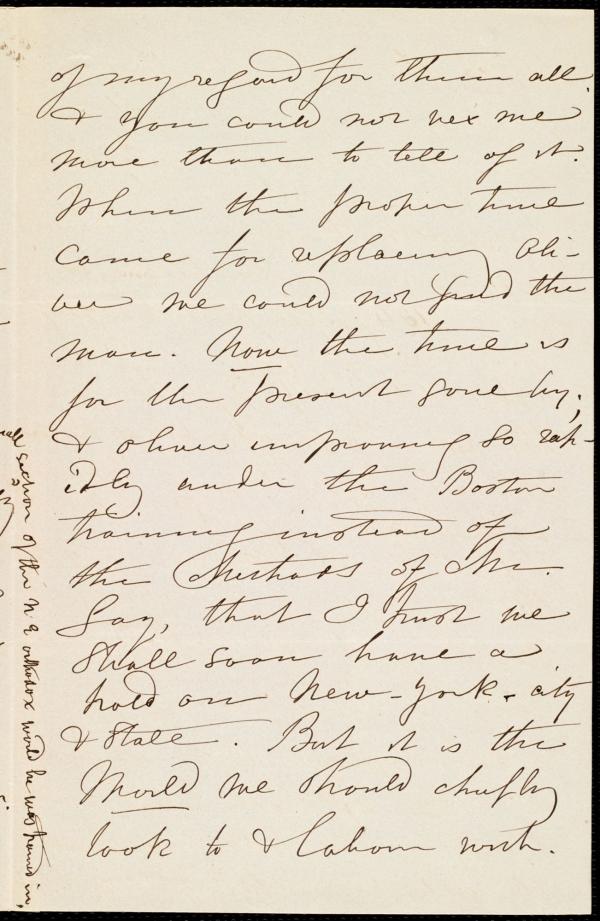 of my regard for them all,
& you could not vex me
more than to tell of it.
When the proper time
came for replacing Oli-
ver we could not find the
man. Now the time is
for the present gone by;
& Oliver improving so rap-
idly under the Boston
training instead of
the Methods of Mr.
Gay, that I trust we
shall soon have a
hold on New-York-city
& State. But it is the
World we should chiefly
look to & labour with.
section of the N. E orthodox world he was trained in,